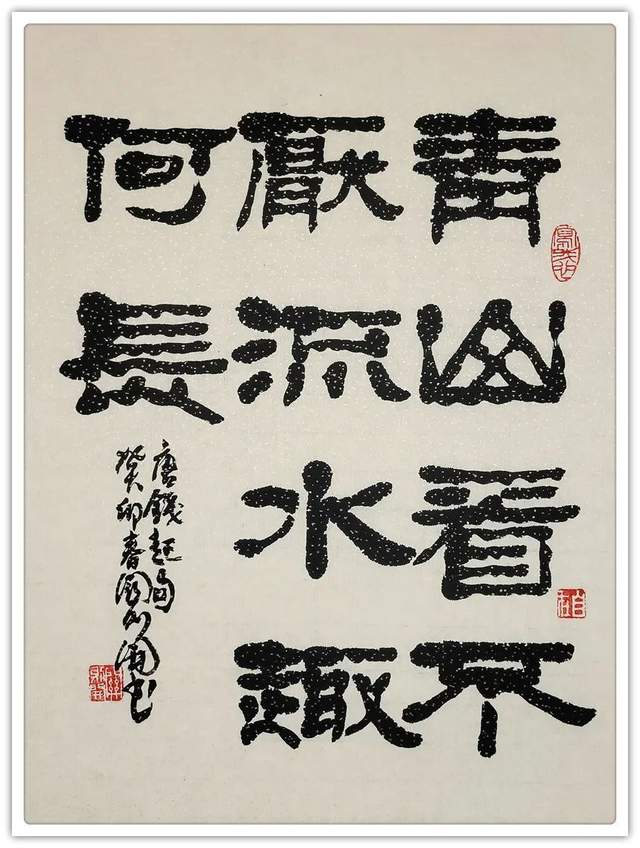 青山看不
厭流水趣
何長
唐錢起句
癸卯春